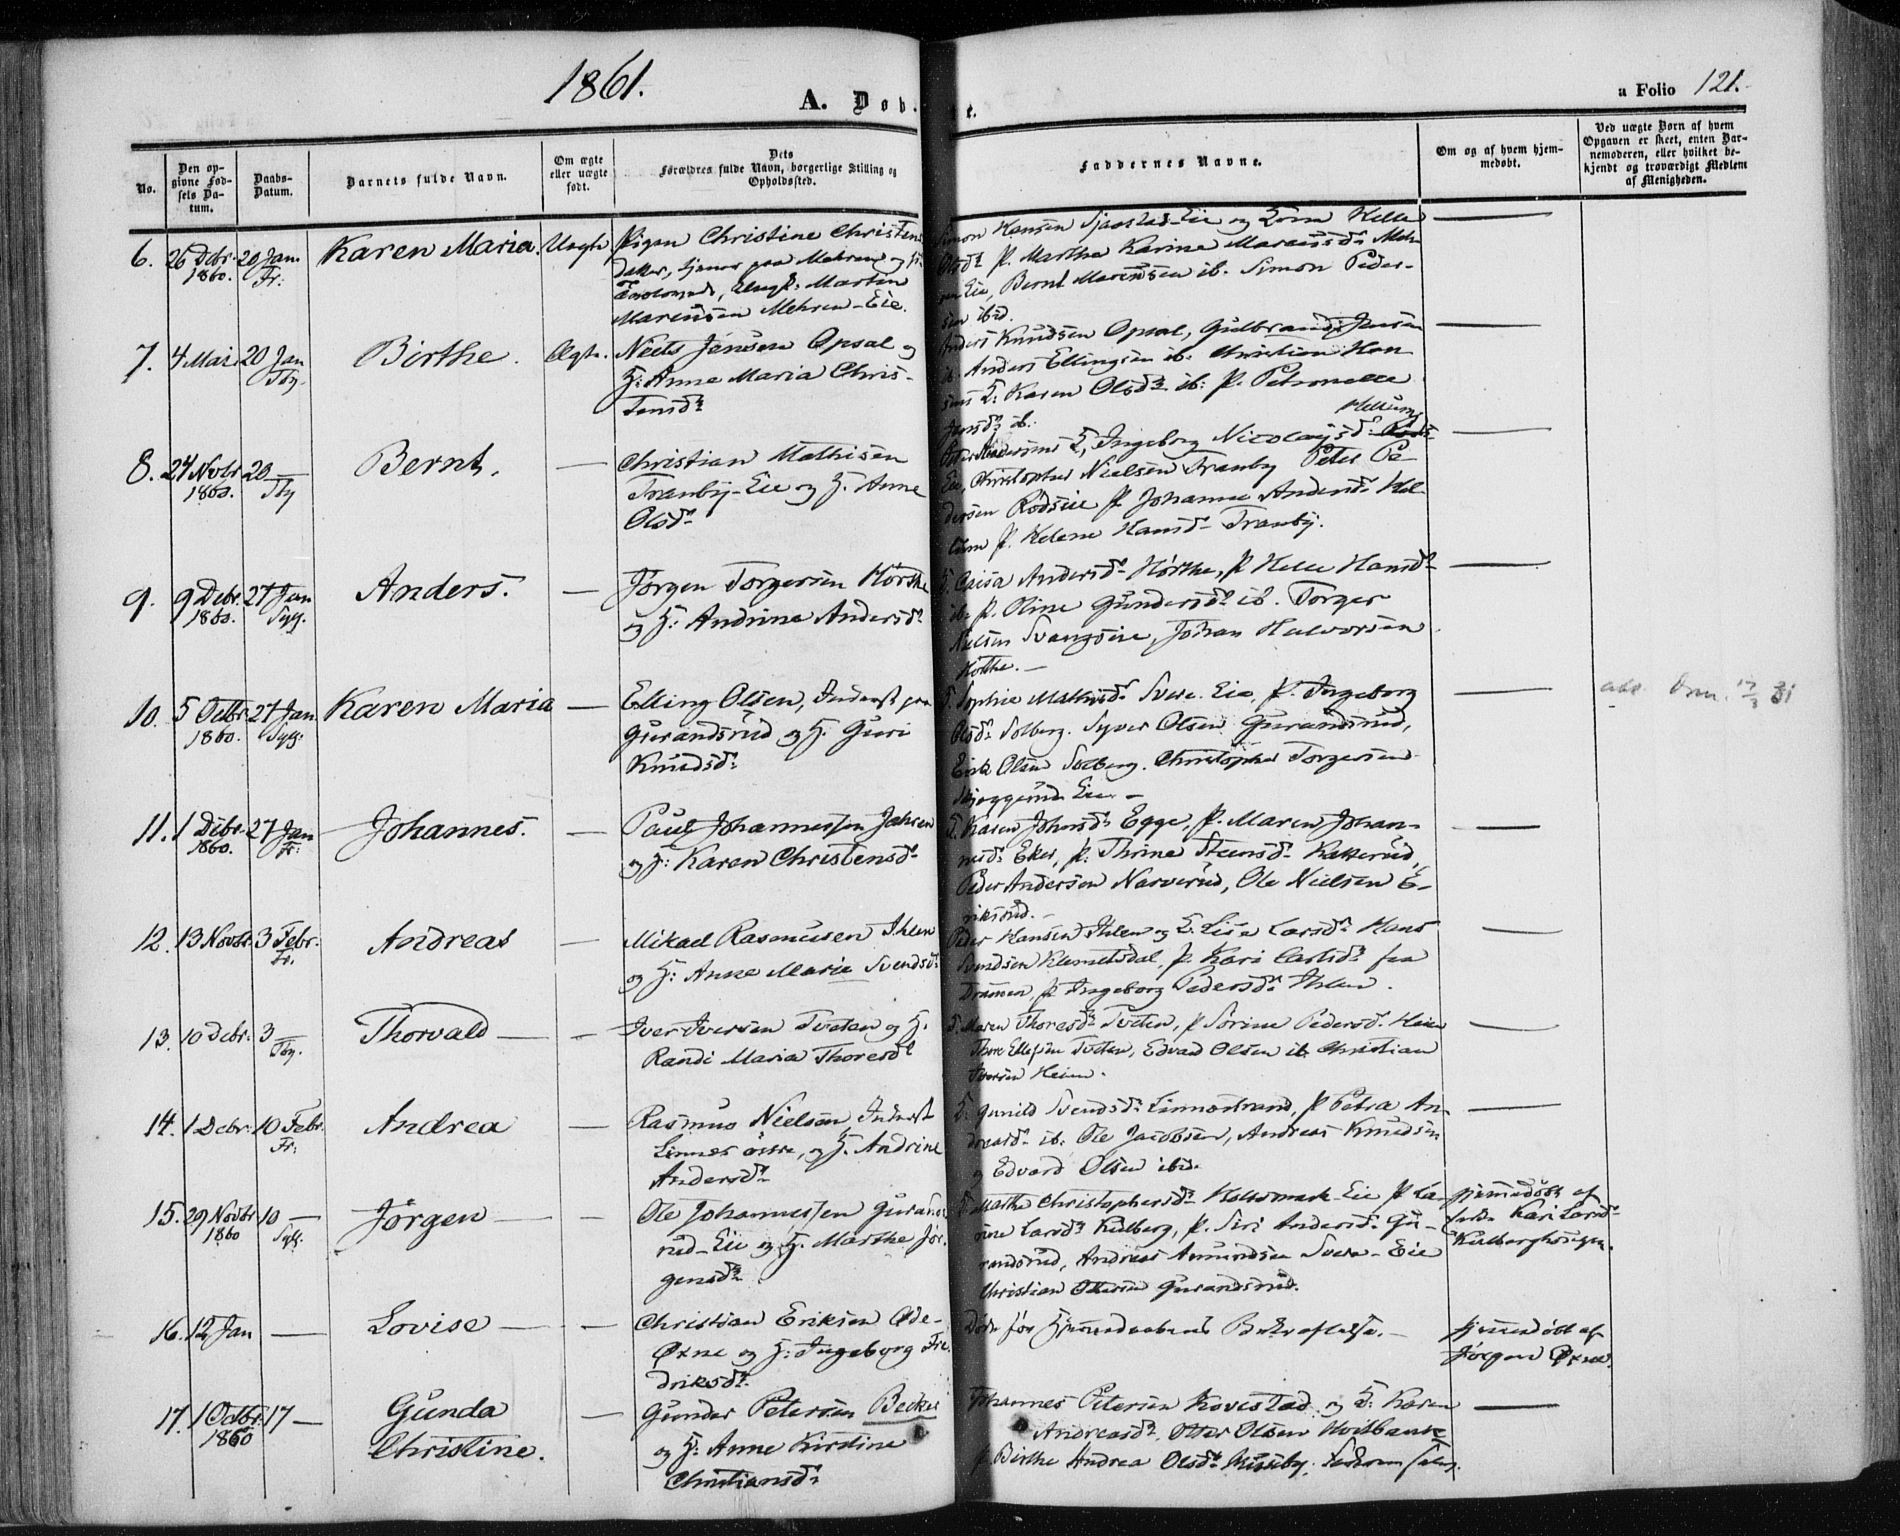 1861.
A. Døb.
t.
a Folio 121.
No.
Den op-
givne Fød-
sels Da-
tum.
Daabs-
Datum.
Barnets fulde Navn.
Om ægte
eller uægte
født.
Dets
Forældres fulde Navn, borgerlige Stilling og
Opholdssted.
Faddernes Navne.
Om og af hvem hjem-
medøbt.
Ved uægte Børn af hvem
Opgaven er skeet, enten Bar-
nemoderen, eller hvilket be-
kjendt og troværdigt Medlem
af Menigheden.
6. 26 Debr. 20 Jan. Karen Maria. Uægte Pigen Christine Christens
1860. Fr:
datter, tjener paa Mehren og
Marten
Marensen Mehren-Eie.
Simon Hansen Sjaastad-Eie og Helle
Olsdr P. Marthea Karine Mareusdr Meh-
ren Eie, Bernt Marensen ib. Simon Peder-
sen ibid.
7. 4 Mai. 20 Jan Birthe. Ægte. Niels Jensen Opsal og
Tby.
H: Anne Maria Chris-
tensdr
Anders Knudsen Opsal, Gulbrand Jensen
ib. Anders Ellingsen ib. Christian Han
sens K: Karen Olsdr ib: P. Petronelle
Jensdr ib.
8. 24 Novbr 20 — Bernt. — Christian Mathisen
1860. Tby
Tranby-Eie og H. Anne
Olsdr
Ingeborg Nicolaisdr
Eie, Christopher Nielsen Tranby Peter Pe-
dersen Rødseie P. Johanne Andersdr Hel-
lum P. Helene Hansdr Tranby.
9. 9 Debr. 27 Jan Anders. — Jørgen Torgersen Hørthe
1860. Sylg.
og H: Andrine Andersdr
K. Andersdr Hørthe, P Helle Hansdr
ib. P. Oline Gundersdr ib. Torger
Nielsen Svangseie, Johan Halvorsen
Hørthe. —
10. 5 Octbr. 27 Jan. Karen Maria — Elling Olsen, Inderst paa
1860. Sylg.
Gurandsrud og H. Guri
Knudsdr
K. Sophie Mathisdr Svere-Eie, P. Ingeborg
Olsdr Solberg. Syver Olsen Gurandsrud,
Erik Olsen Solberg. Christopher Torgersen
Skjeggerud Eie. —
11. 1 Debr. 27 Jan Johannes. — Paul Johannessen Jahren
1860. Fr:
og H: Karen Christensdr
K. Karen Johnsdr Egge, P. Maren Johan-
nesdr Eker, P. Thrine Steensdr Katterud,
Peder Andersen Narverud, Ole Nielsen E-
riksrud. —
12. 13 Novbr. 3 Febr. Andreas — Mikael Rasmussen Ihlen
Fr.
og H: Anne Marie Svendsdr
Peder Hansen Ihlen og K: Lise Larsdr Hans
Svendsen Klemetsdal, P. Kari Carlsdr fra
Drammen, P. Ingeborg Pedersdr Ihlen.
13. 10 Debr. 3 — Thorvald — — Iver Iversen Tveten og H.
Tby.
Randi Maria Thoresdr
K. Maren Thoresdr Tveten, P Sørine Pedersdr Heien
Thore Ellefsen Tveten, Edvard Olsen ib Christian
Iversen Heien.
14. 1 Debr. 10 Febr. Andrea — Rasmus Nielsen, Inderst
Fr:
Linnes østre, og H. Andrine
Andersdr
K. Gunild Svendsdr Linnesstrand, P Petra An-
dreasdr ib. Ole Jacobsen, Andreas Knudsen
og Edvard Olsen ibid.
15. 29 Novbr 10 — Jørgen — — Ole Johannessen Gurands
1860 Sylg.
rud-Eie og H. Marthe Jør-
gensdr
K. Marthe Christophersdr Eie P La-
rine Larsdr Kulberg, P. Siri Andersdr Gu-
randsrud, Andreas Amundsen Svere-Eie
Christian Ottersen Gurandsrud.
hjemmedøbt af
Kari Larsdr
16. 12 Jan — Lovise — — Christian Eriksen Øde-
Øxne og H: Ingeborg Fre
driksdr.
Døde før Hjemmedaabens Bekræftelse. —
hjemmedøbt af
Jørgen Øxne.
17. 1 Octbr. 17 — Gunda — Gunder Petersen Becker
1860
Christine.
og H. Anne Kirstine
Christiansdr
Johannes Petersen Hovestad og K: Karen
Andreasdr, Otter Olsen Hvitbank
P. Birthe Andrea Olsdr